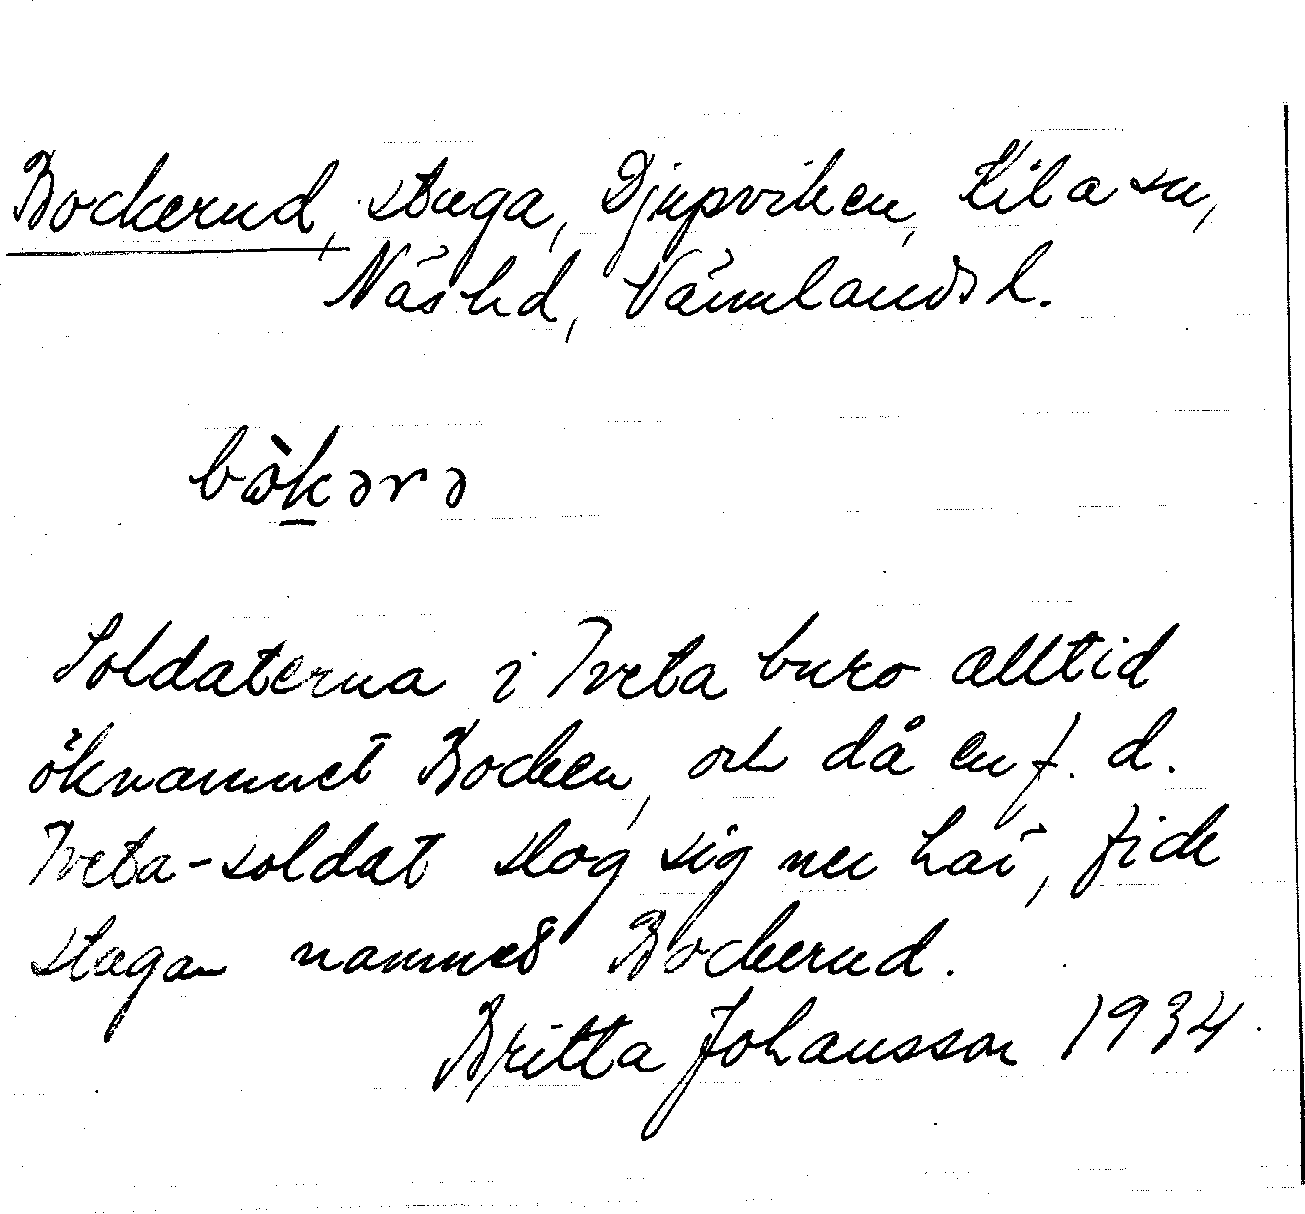 Bockerud, stuga, Djupviken, Kila sn,
Näs hd, Värmlands l.
bòkərə
Soldaterna i Tveta buro alltid
öknamnet Bocken, och då en f. d.
Tveta-soldat slog sig ner här, fick
stugan namnet Bockerud.
Britta Johansson 1934.